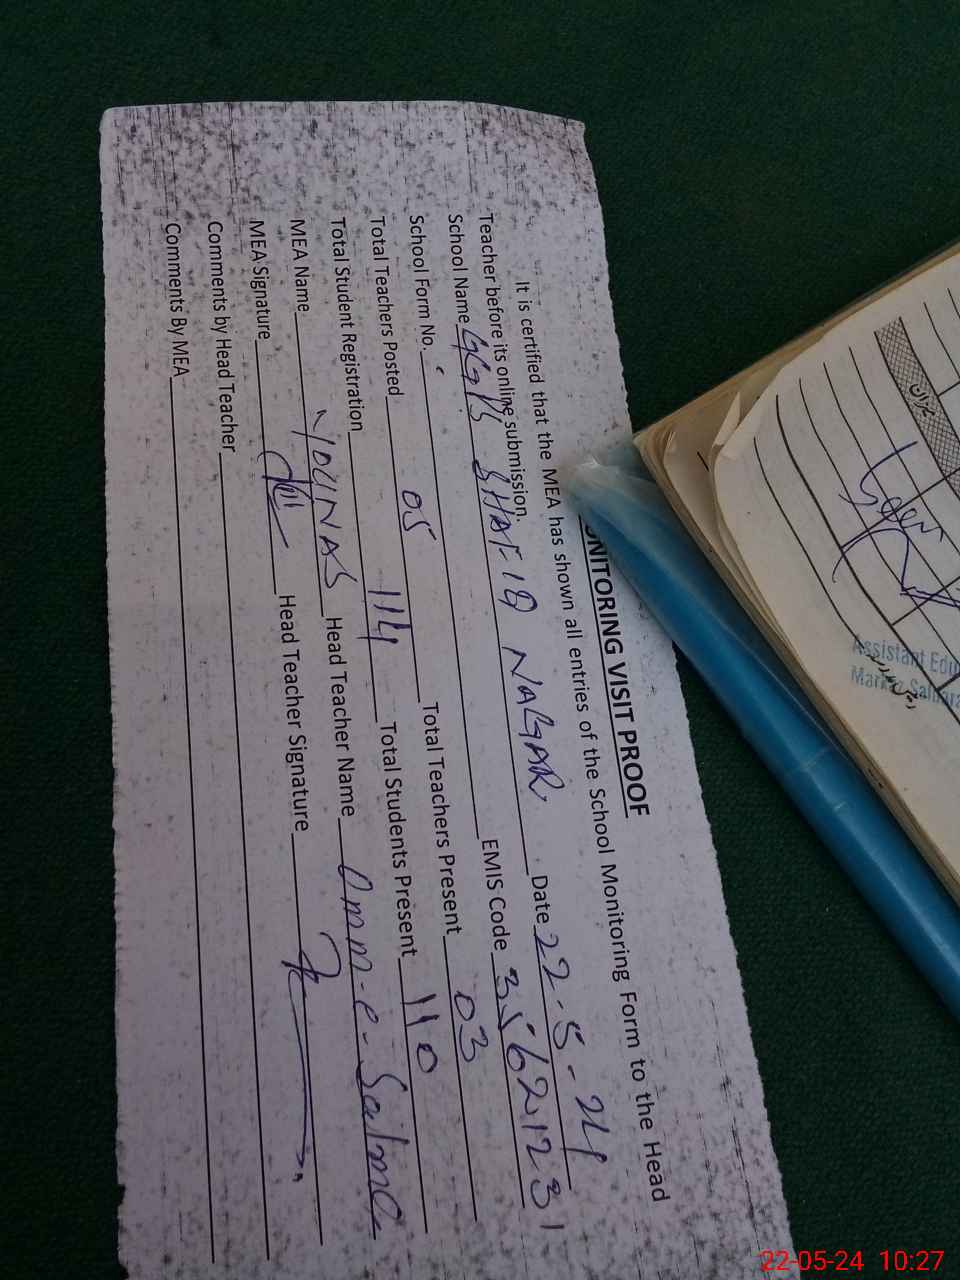 ONITORING VISIT PROOF
It is certified that the MEA has shown all entries of the School Monitoring Form to the Head
Teacher before its online submission.
School Name SHAFIQ NAGAR Date 22-5-24
School Form No. EMIS Code
Total Teachers Posted 05 Total Teachers Present 03
Total Student Registration 114 Total Students Present 110
MEA Name YOUNAS Head Teacher Name Omm-e-Salma
MEA Signature Head Teacher Signature
Comments by Head Teacher
Comments By MEA
Assistant Edu
22-05-24 10:27